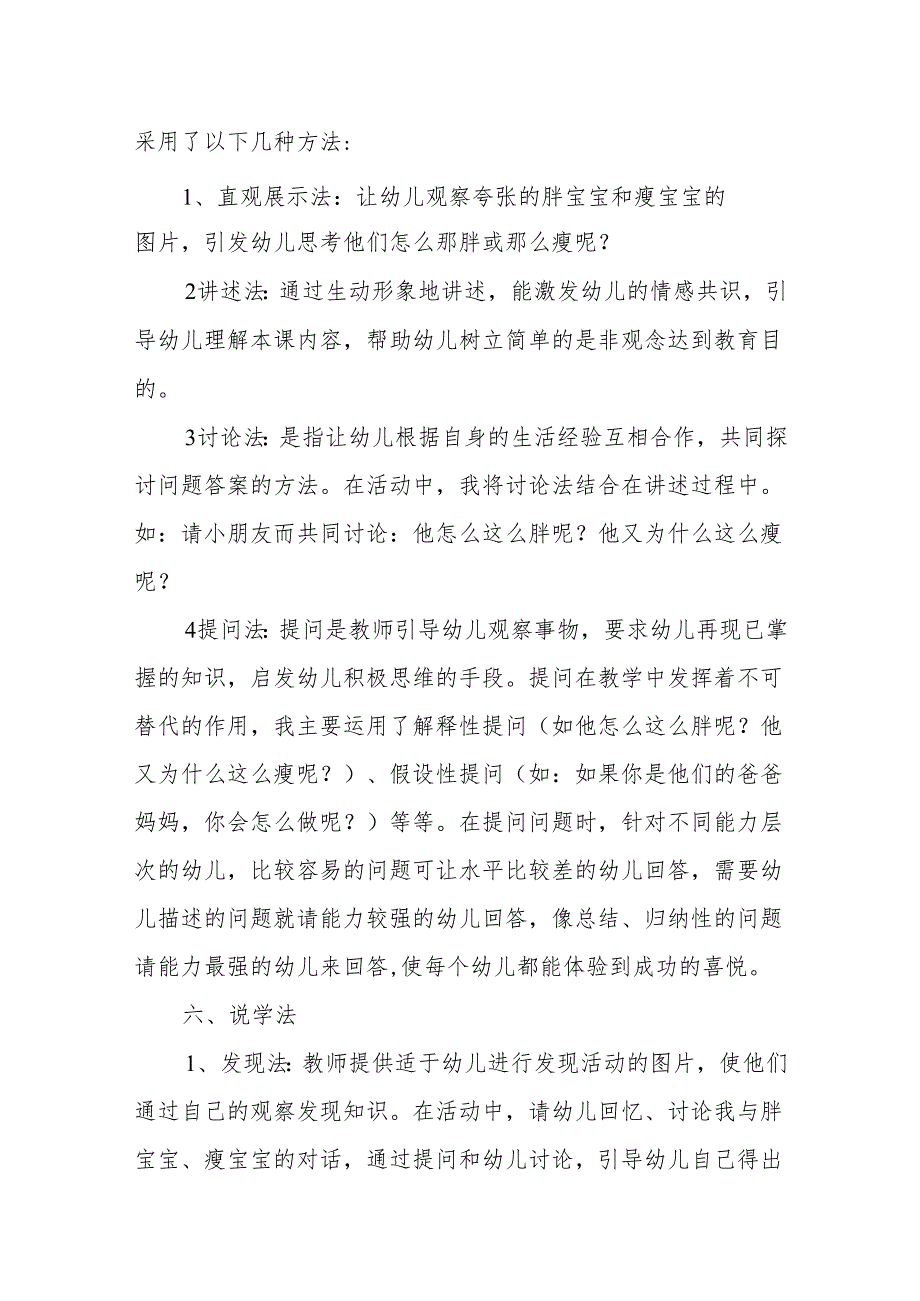 采用了以下几种方法:
1、直观展示法：让幼儿观察夸张的胖宝宝和瘦宝宝的
图片，引发幼儿思考他们怎么那胖或那么瘦呢？
2讲述法：通过生动形象地讲述，能激发幼儿的情感共识，引
导幼儿理解本课内容，帮助幼儿树立简单的是非观念达到教育目
的。
3讨论法：是指让幼儿根据自身的生活经验互相合作，共同探
讨问题答案的方法。在活动中，我将讨论法结合在讲述过程中。
如：请小朋友而共同讨论：他怎么这么胖呢？他又为什么这么瘦
呢？
4提问法：提问是教师引导幼儿观察事物，要求幼儿再现已掌
握的知识，启发幼儿积极思维的手段。提问在教学中发挥着不可
替代的作用，我主要运用了解释性提问（如他怎么这么胖呢？他
又为什么这么瘦呢？）、假设性提问（如：如果你是他们的爸爸
妈妈，你会怎么做呢？）等等。在提问问题时，针对不同能力层
次的幼儿，比较容易的问题可让水平比较差的幼儿回答，需要幼
儿描述的问题就请能力较强的幼儿回答，像总结、归纳性的问题
请能力最强的幼儿来回答,使每个幼儿都能体验到成功的喜悦。
六、说学法
1、发现法：教师提供适于幼儿进行发现活动的图片，使他们
通过自己的观察发现知识。在活动中，请幼儿回忆、讨论我与胖
宝宝、瘦宝宝的对话，通过提问和幼儿讨论，引导幼儿自己得出